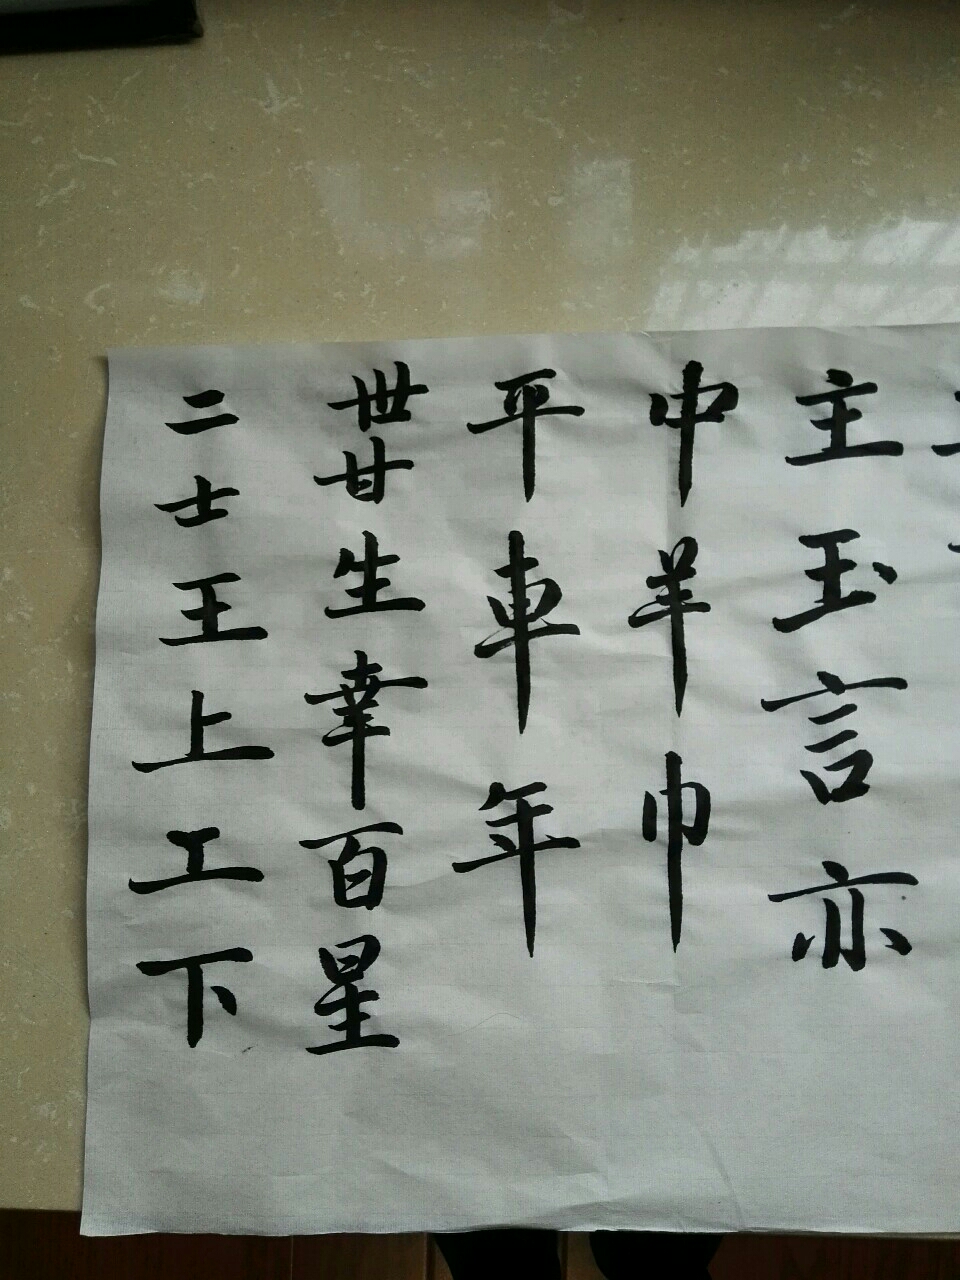 主玉言亦
中羊巾
平車年
世廿生幸百星
二士王上工下